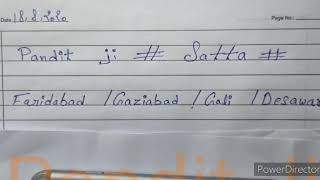 Date
Page No.:
Pandit ji # Satta #
Faridabad / Gaziabad / Gali / Desawar
PowerDirector